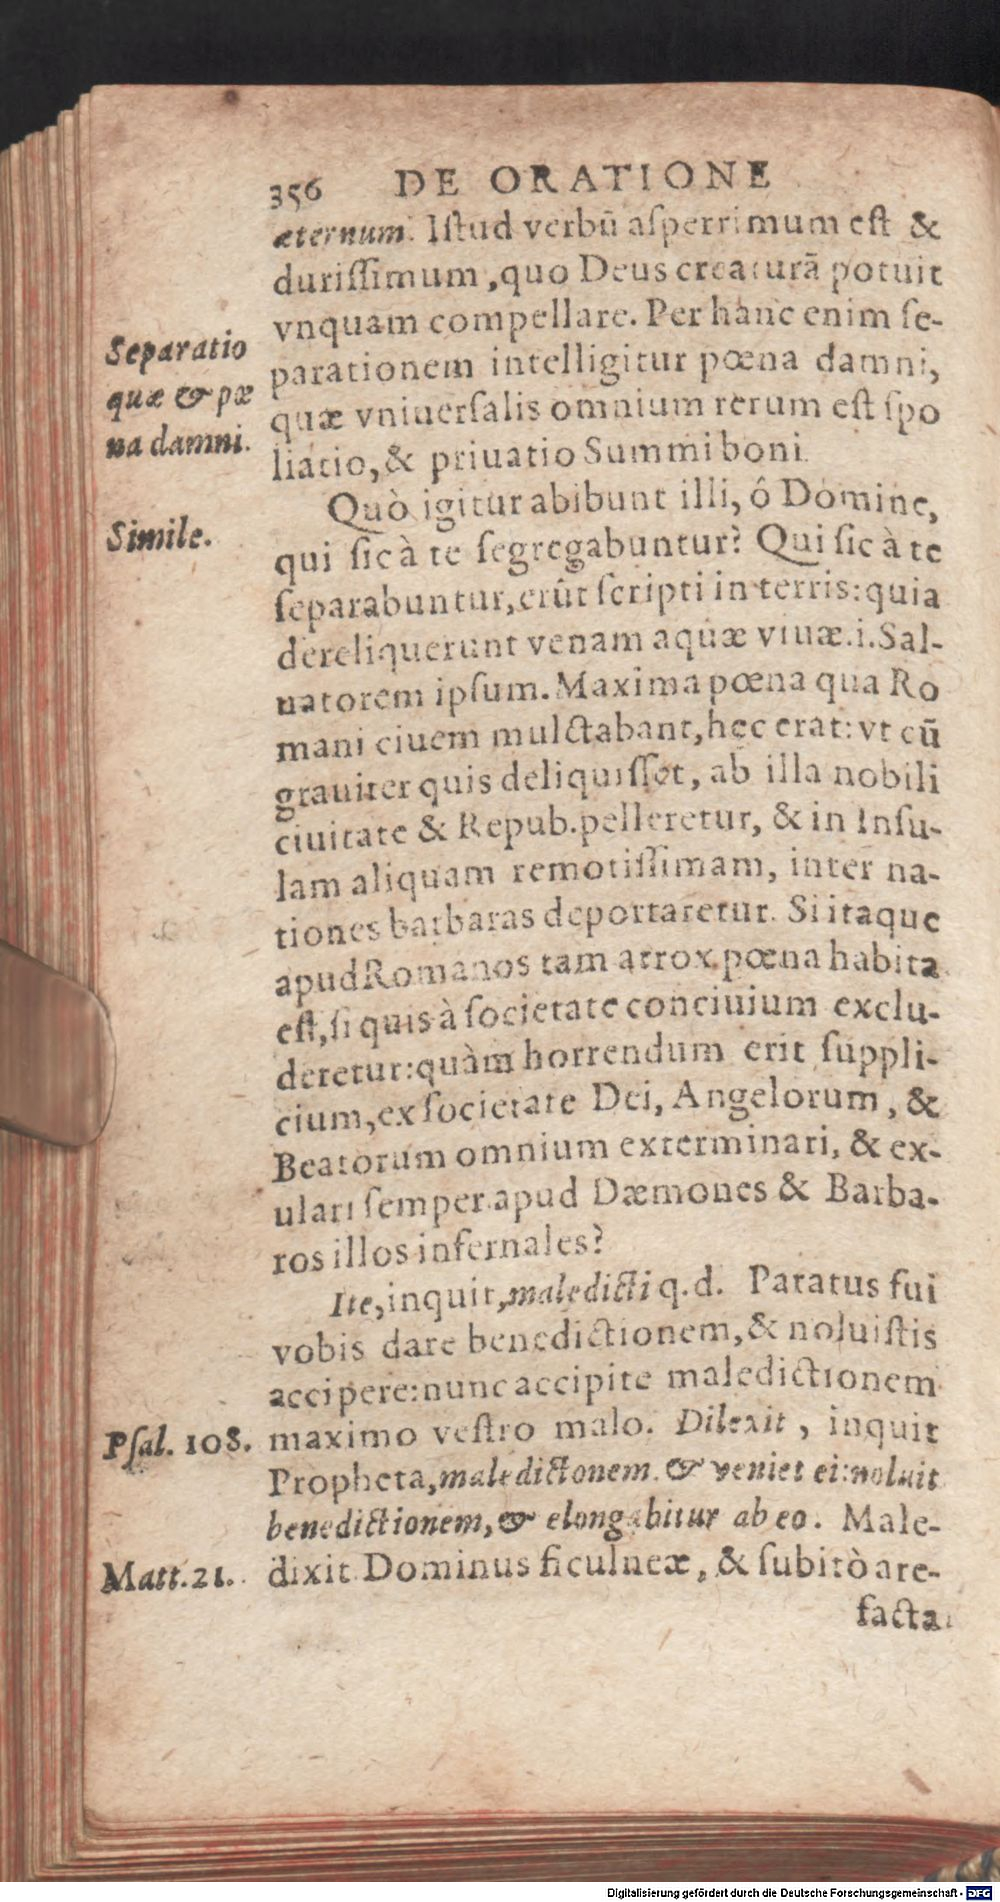 356 DE ORATIONE
æternum. Iſtud verbū aſperrimum eſt &
duriſſimum, quo Deus creaturā potuit
vnquam compellare. Per hanc enim ſe-
Separatio
parationem intelligitur pœna damni,
quæ & pœ
quæ vniuerſalis omnium rerum eſt ſpo
na damni.
liatio, & priuatio Summi boni.
Quò igitur abibunt illi, ô Domine,
Simile.
qui ſic à te ſegregabuntur? Qui ſic à te
ſeparabuntur, erût ſcripti in terris: quia
dereliquerunt venam aquæ viuæ .i. Sal-
uatorem ipſum. Maxima pœna qua Ro
mani ciuem mulctabant, hęc erat: vt cū
grauiter quis deliquiſſet, ab illa nobili
ciuitate & Repub. pelleretur, & in Inſu-
lam aliquam remotiſſimam, inter na-
tiones barbaras deportaretur. Si itaque
apud Romanos tam atrox pœna habita
eſt, ſi quis à ſocietate conciuium exclu-
deretur: quàm horrendum erit ſuppli-
cium, ex ſocietate Dei, Angelorum, &
Beatorum omnium exterminari, & ex-
ulari ſemper apud Dæmones & Barba-
ros illos infernales?
Ite, inquit, maledicti q. d. Paratus fui
vobis dare benedictionem, & noluiſtis
accipere: nunc accipite maledictionem
Pſal. 108.
maximo veſtro malo. Dilexit, inquit
Propheta, maledictonem & veniet ei: noluit
benedictionem, & elongabitur ab eo. Male-
Matt. 21.
dixit Dominus ficulneæ, & ſubitò are-
facta
Digitalisierung gefördert durch die Deutsche Forschungsgemeinschaft - DFG